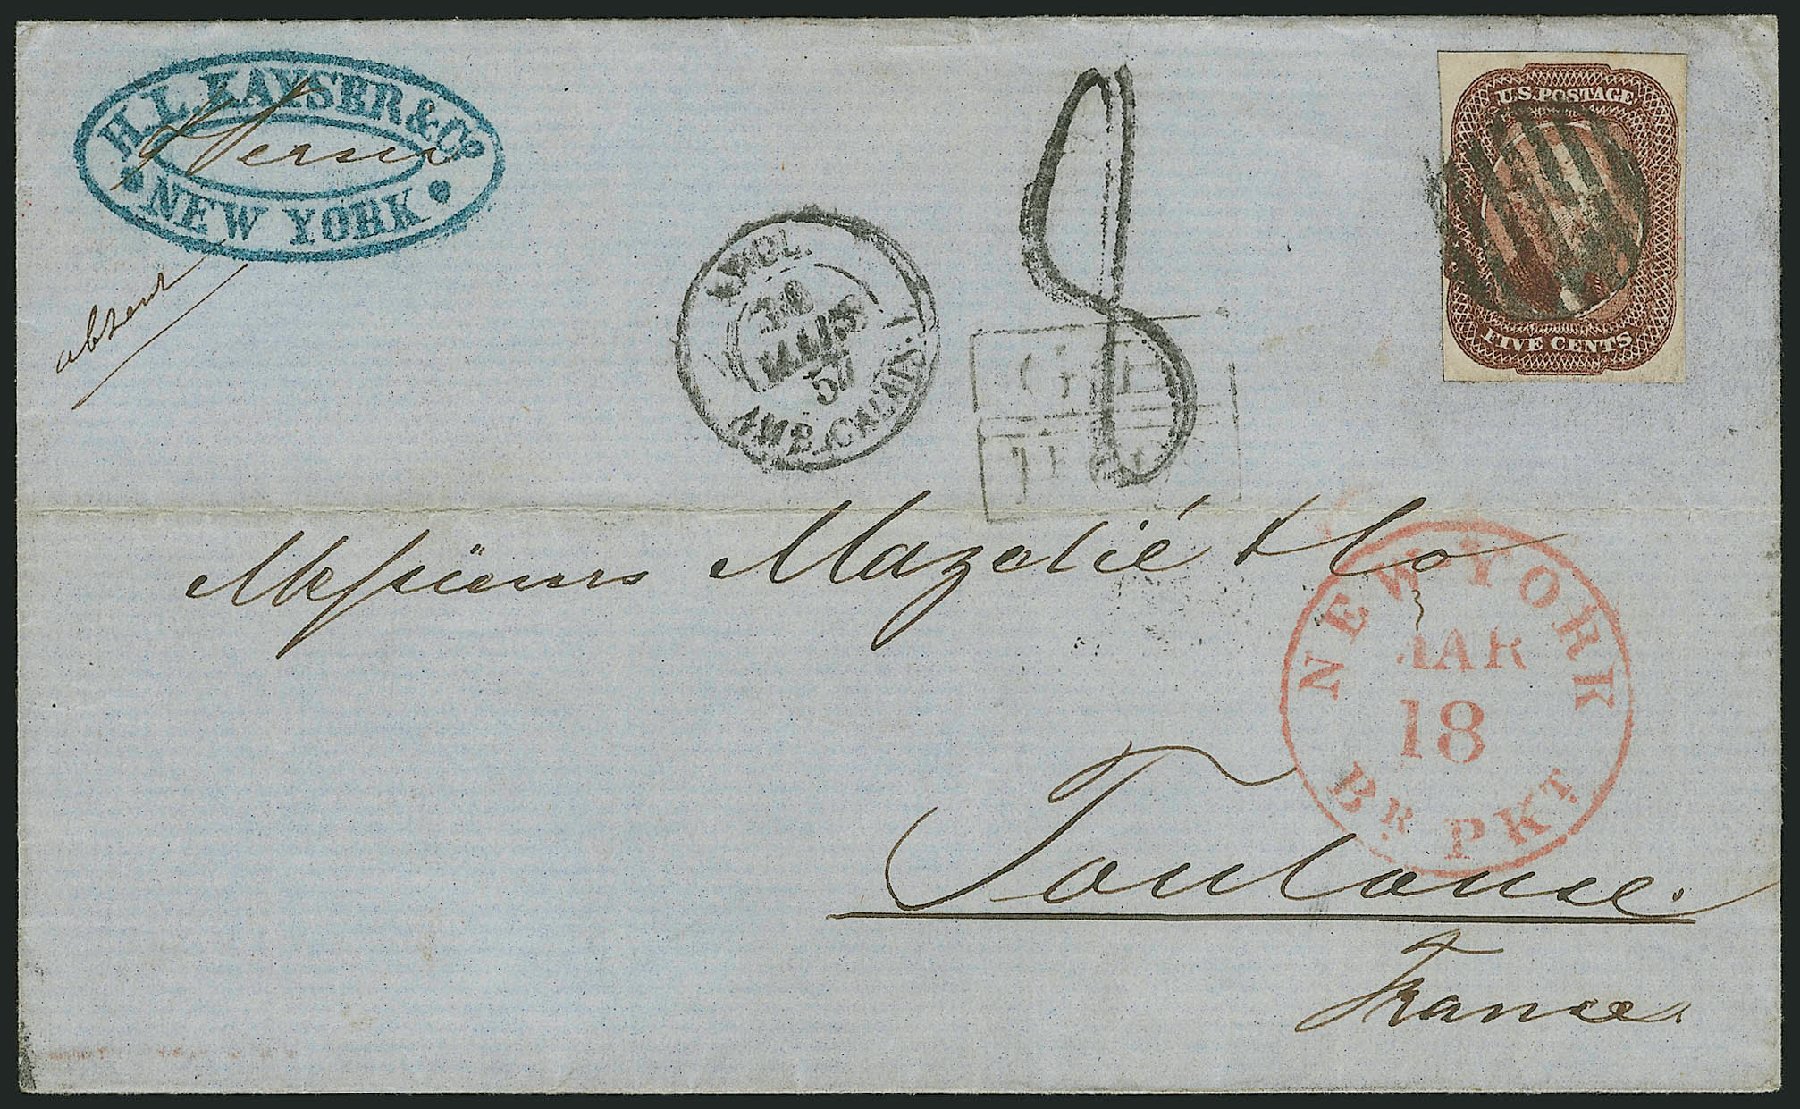 H. L. KAYSER & Co
Persia
NEW YORK
absent
U.S. POSTAGE
FIVE CENTS
8
ANGL.
30
MARS
57
AMB. CALAIS
GB
Messieurs Mazelié & Co
NEW YORK
MAR
18
BR. PKT.
Toulouse.
France.